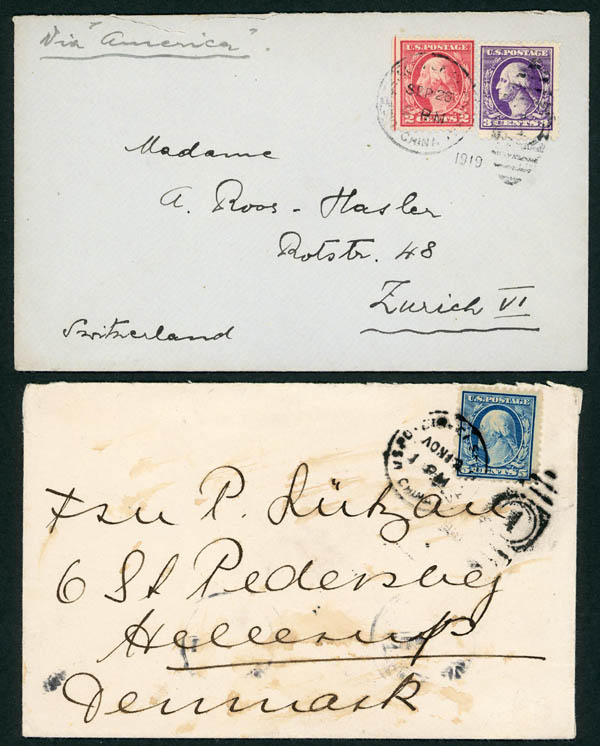 Via "America".
U.S. POSTAGE
2 CENTS 2
U.S. POSTAGE
3 CENTS 3
SEP 26
CHINA
1919
Madame
A. Roos-Hasler
Rotstr. 48
Zurich VI
Switzerland
U.S. POSTAGE
5 CENTS 5
U.S. POSTAL
NOV
CHINA
1
P. Lützau
6 St Pedersvej
Hellerup
Denmark